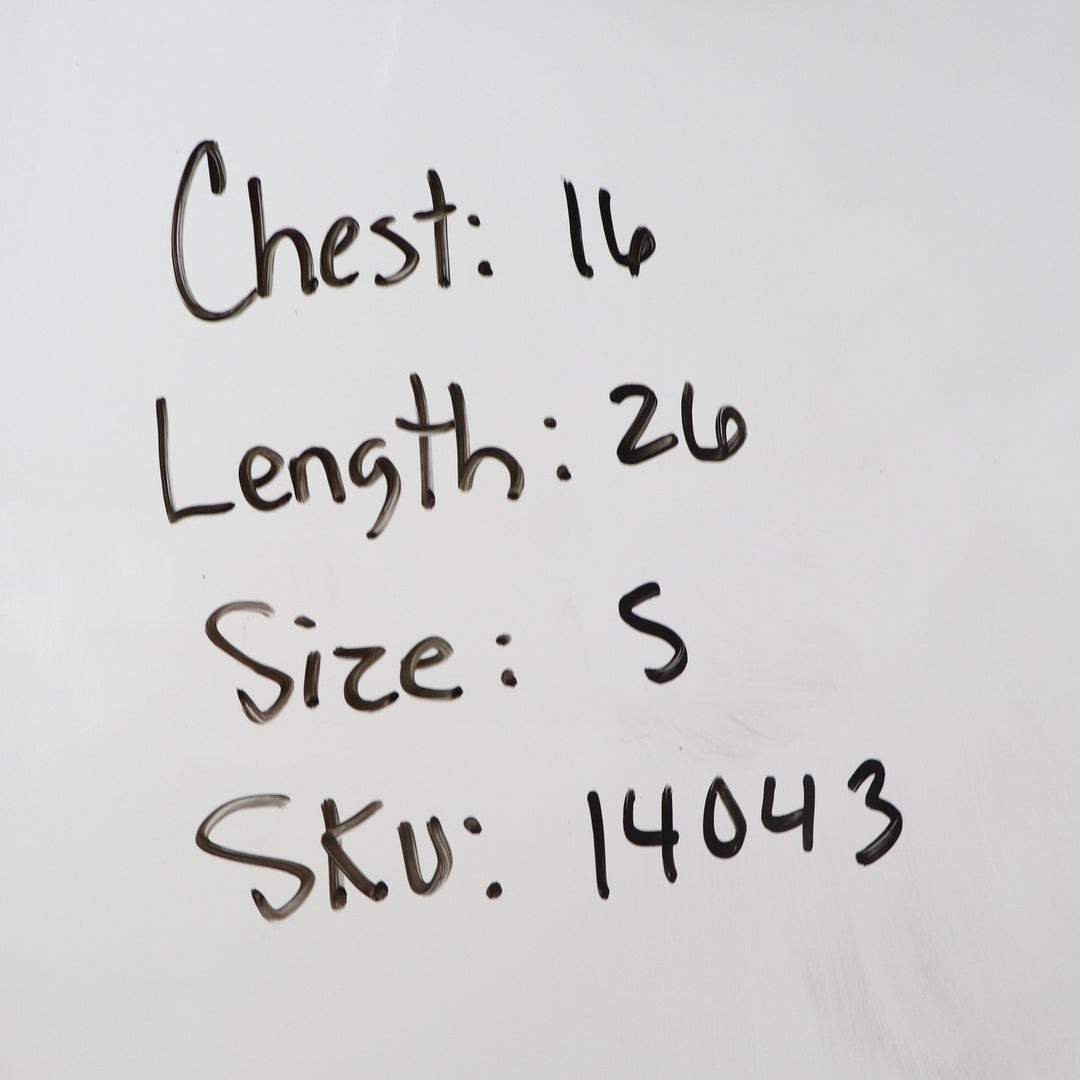 Chest: 16
Length: 26
Size: S
SKU: 14043